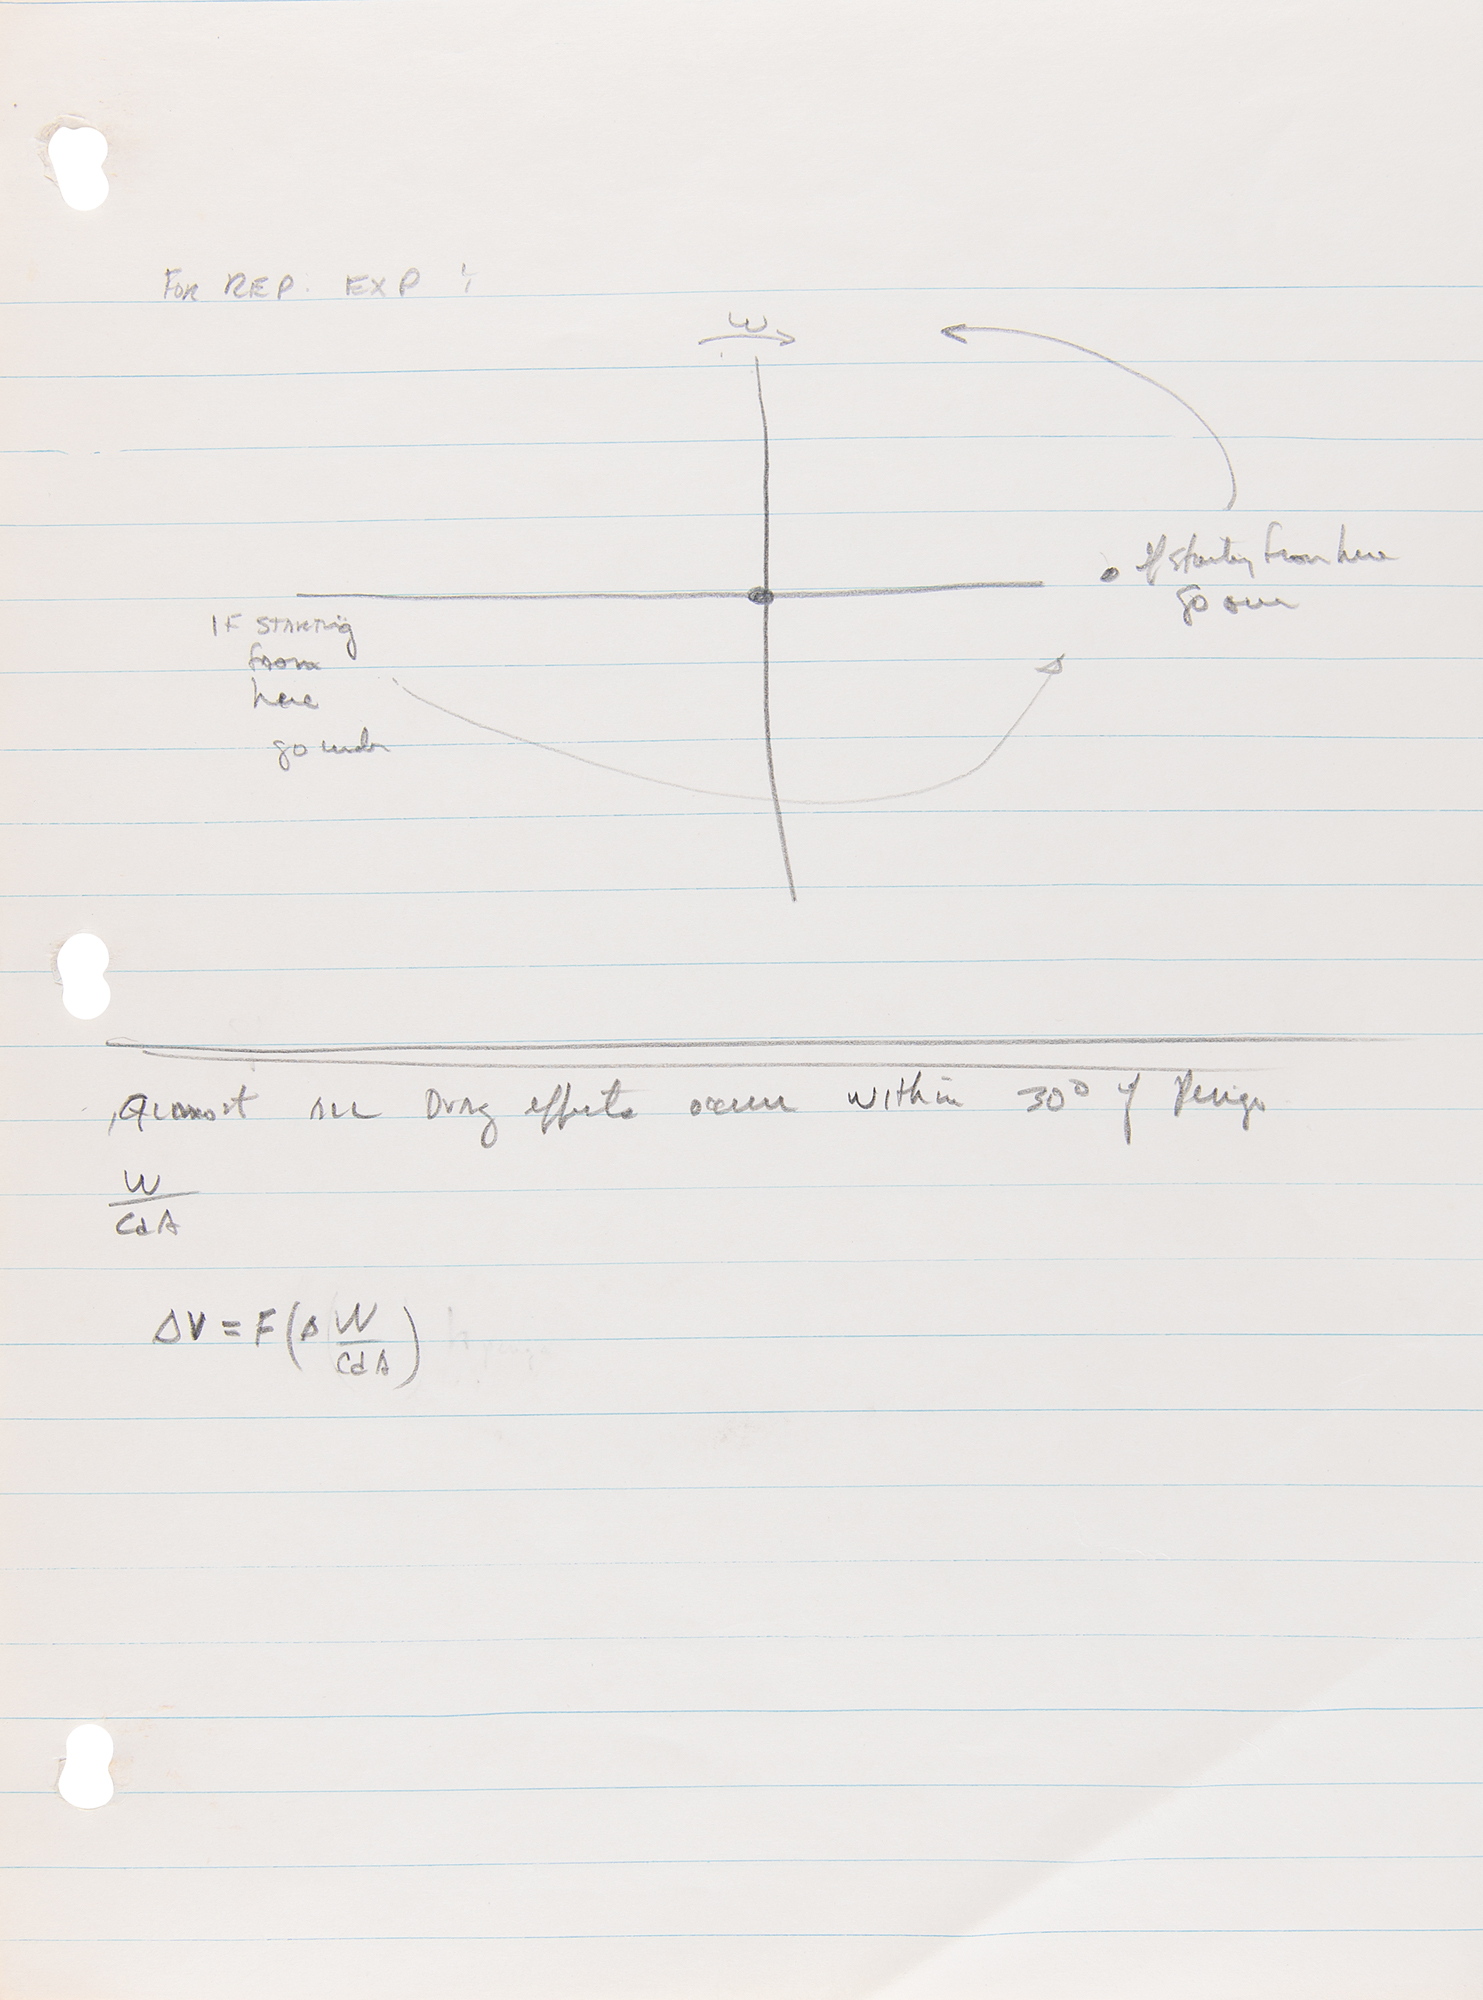 For REP. EXP :
ω
If starting from here
go over
IF STARTING
from
here
go under
Almost ALL Drag effects occur within 30° of Perigee
W
CdA
ΔV = F(Δ W/CdA)